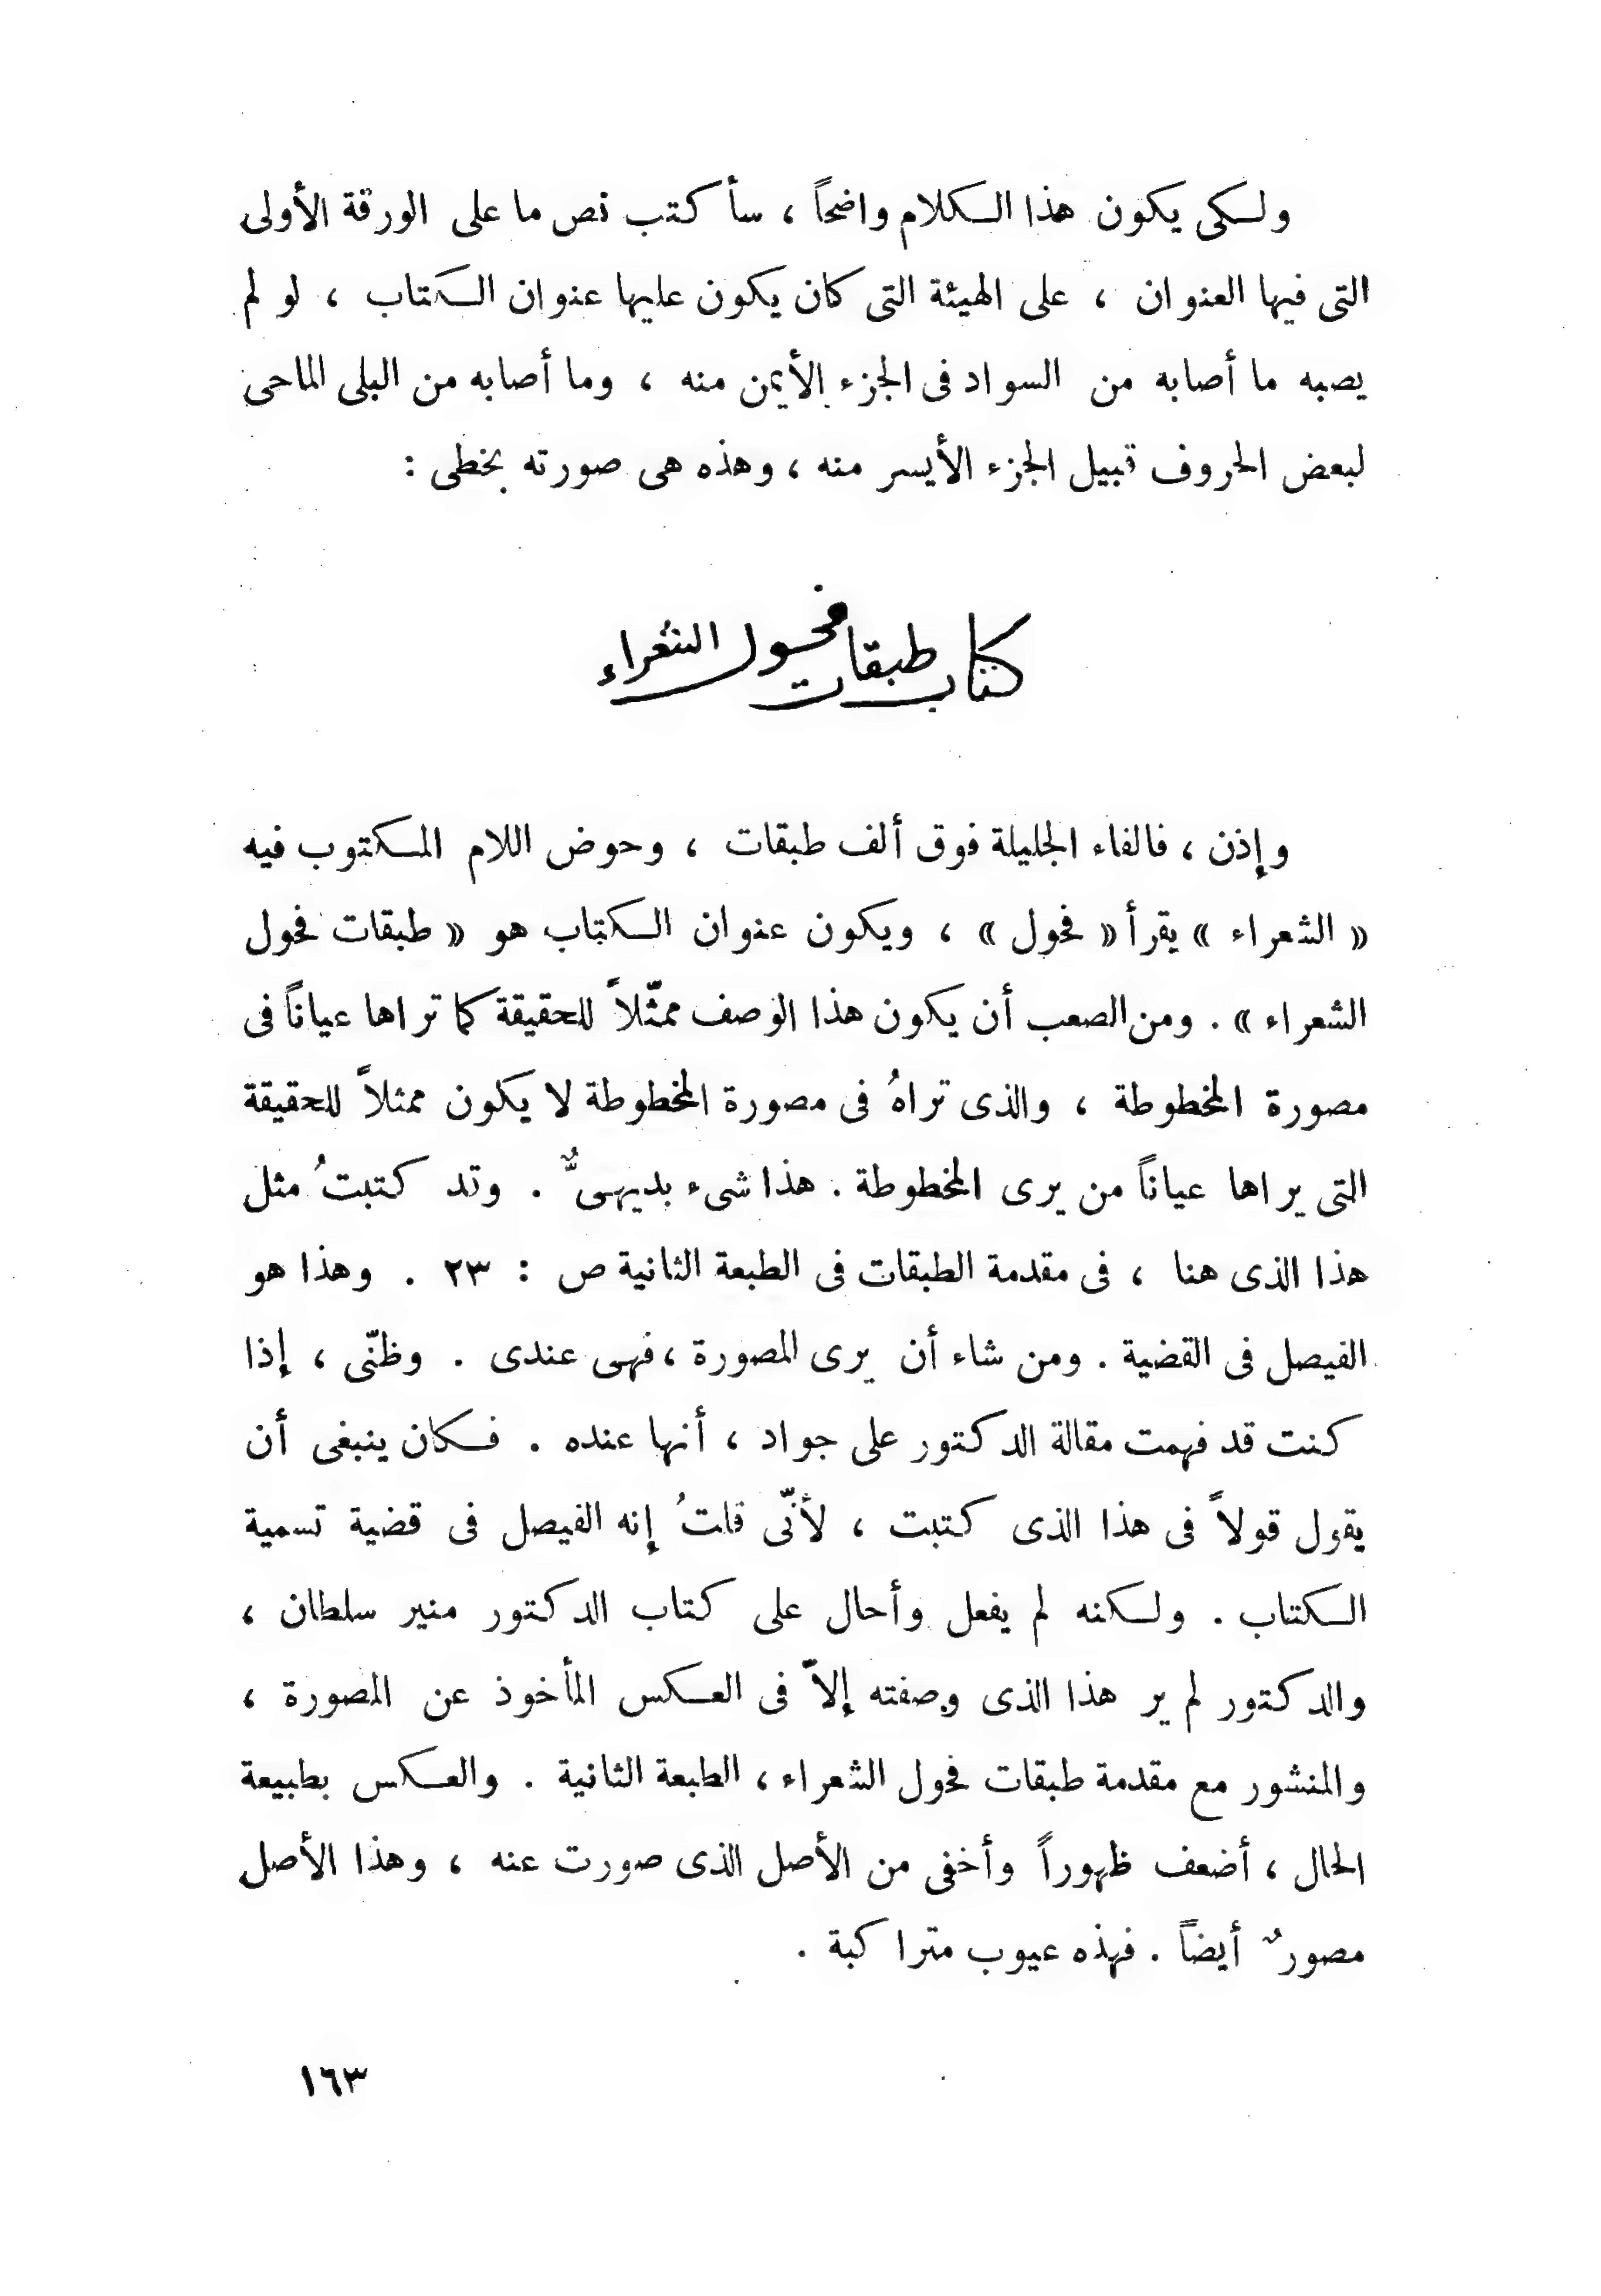 ولكى يكون هذا الكلام واضحاً ، سأكتب نص ما على الورقة الأولى
التى فيها العنوان ، على الهيئة التى كان يكون عليها عنوان الكتاب ، لو لم
يصبه ما أصابه من السواد فى الجزء الأيمن منه ، وما أصابه من البلى الماحى
لبعض الحروف قبيل الجزء الأيسر منه ، وهذه هى صورته بخطى :
كتاب طبقات فحول الشعراء
وإذن ، فالفاء الجليلة فوق ألف طبقات ، وحوض اللام المكتوب فيه
« الشعراء » يقرأ « فحول » ، ويكون عنوان الكتاب هو « طبقات فحول
الشعراء » . ومن الصعب أن يكون هذا الوصف ممثّلاً للحقيقة كما تراها عياناً فى
مصورة المخطوطة ، والذى تراهُ فى مصورة المخطوطة لا يكون ممثلاً للحقيقة
التى يراها عياناً من يرى المخطوطة . هذا شىء بديهىٌّ . وقد كتبتُ مثل
هذا الذى هنا ، فى مقدمة الطبقات فى الطبعة الثانية ص : ٢٣ . وهذا هو
الفيصل فى القضية . ومن شاء أن يرى المصورة ، فهى عندى . وظنّى ، إذا
كنت قد فهمت مقالة الدكتور على جواد ، أنها عنده . فكان ينبغى أن
يقول قولاً فى هذا الذى كتبت ، لأنّى قلتُ إنه الفيصل فى قضية تسمية
الكتاب . ولكنه لم يفعل وأحال على كتاب الدكتور منير سلطان ،
والدكتور لم ير هذا الذى وصفته إلاّ فى العكس المأخوذ عن المصورة ،
والمنشور مع مقدمة طبقات فحول الشعراء ، الطبعة الثانية . والعكس بطبيعة
الحال ، أضعف ظهوراً وأخفى من الأصل الذى صورت عنه ، وهذا الأصل
مصورٌ أيضاً . فهذه عيوب متراكبة .
١٦٣